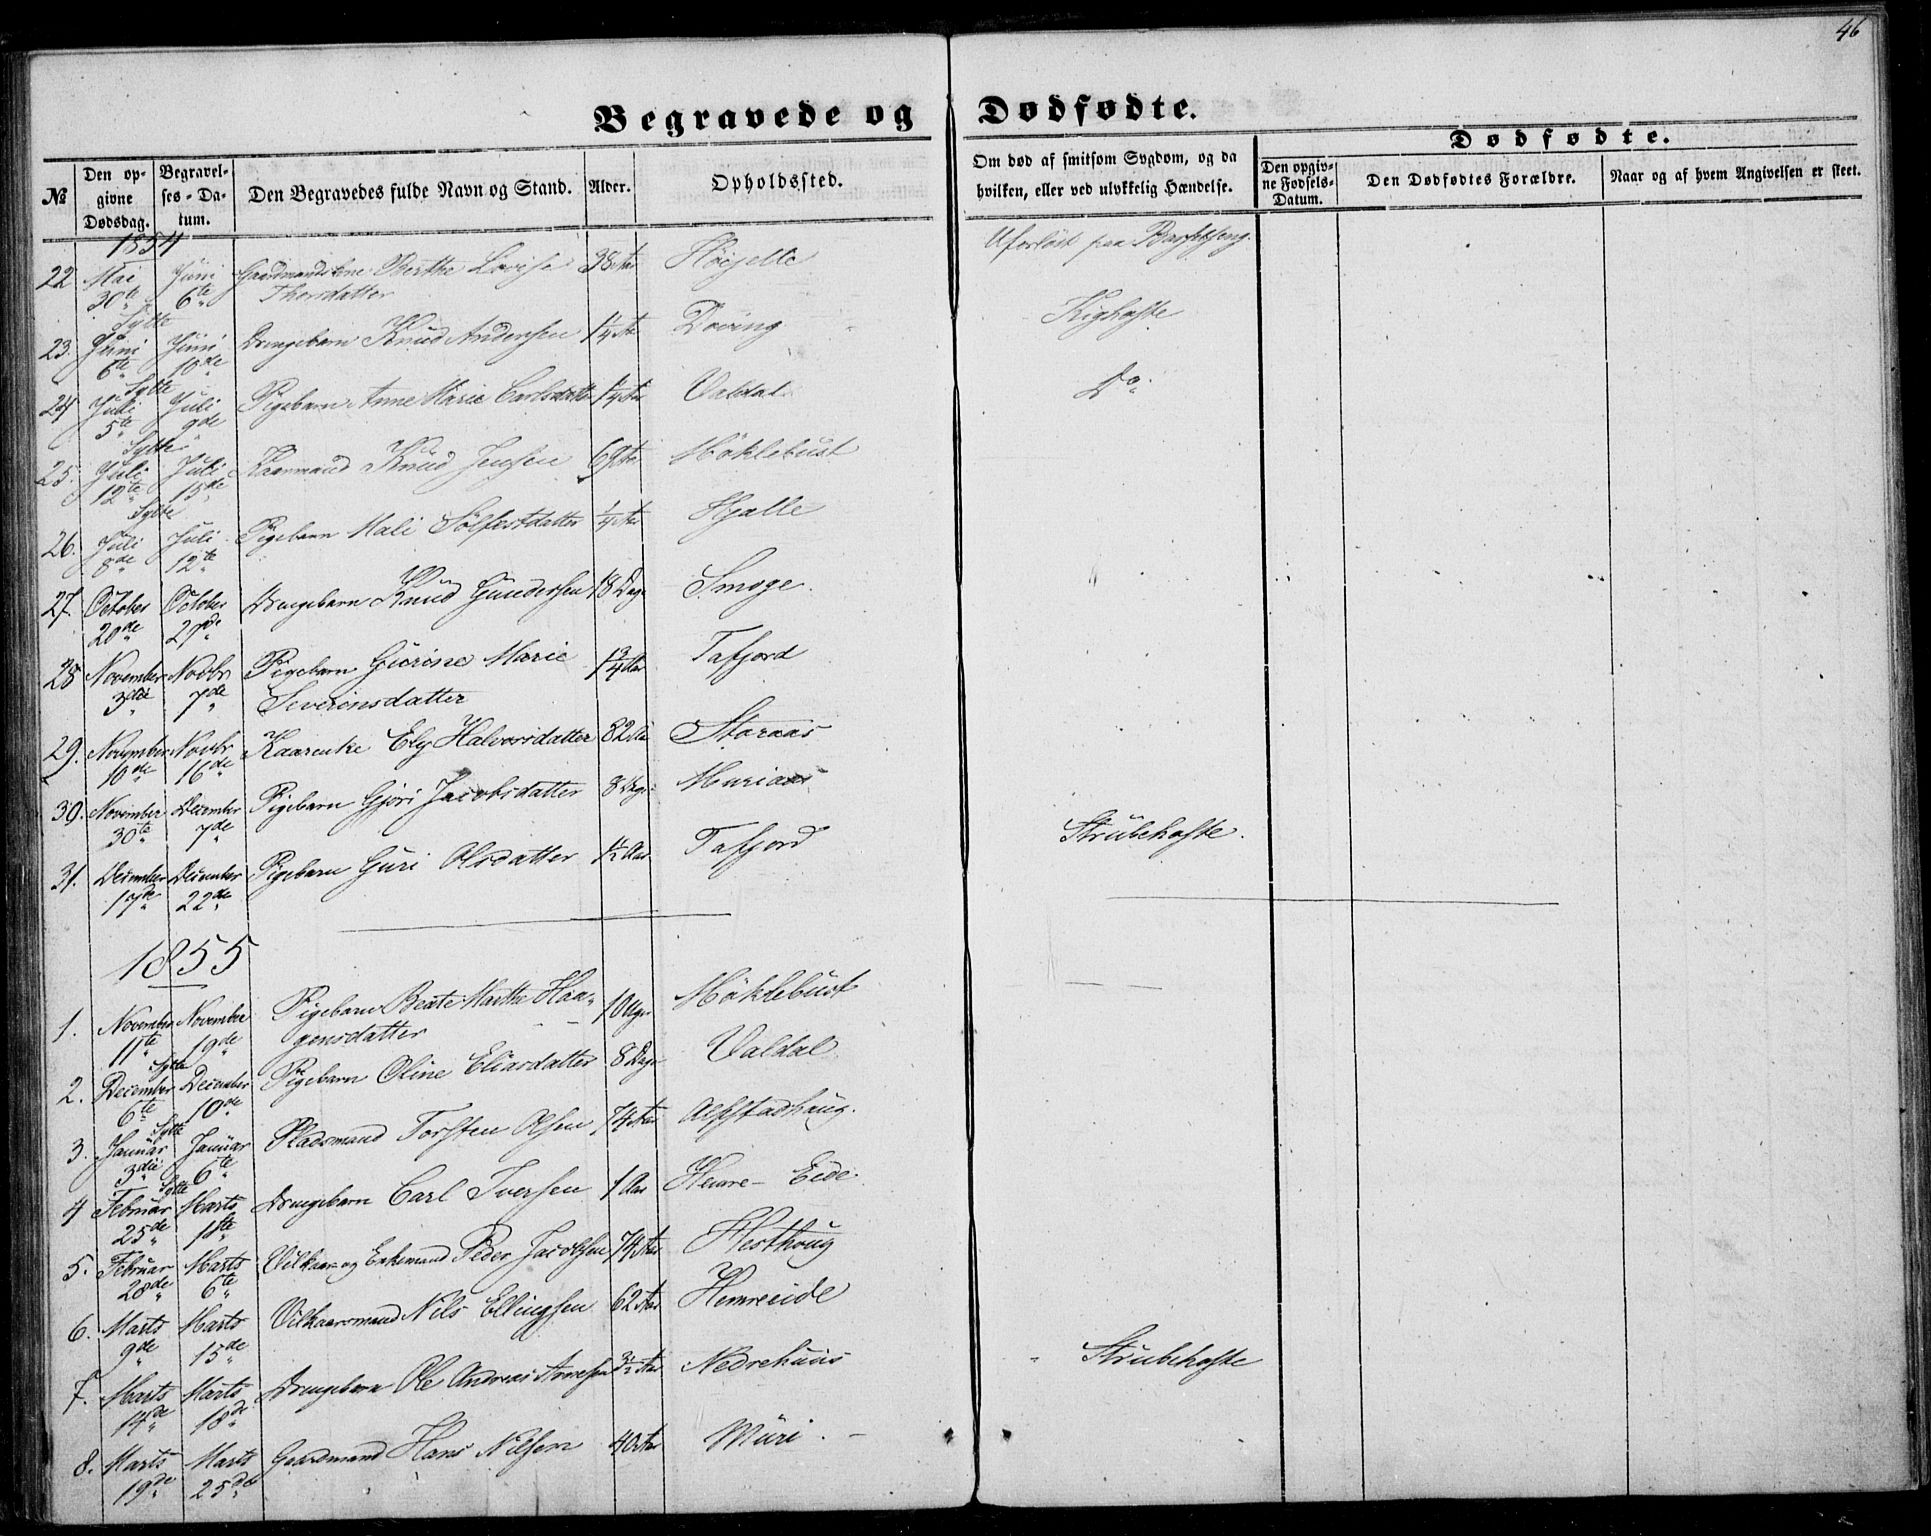 46
Begravede og Dødfødte.
Dødfødte.
№ Den opgivne Dødsdag. Begravelses-Datum. Den Begravedes fulde Navn og Stand. Alder. Opholdssted. Om død af smitsom Sygdom, og da hvilken, eller ved ulykkelig Hændelse. Den opgivne Fødsels-Datum. Den Dødfødtes Forældre. Naar og af hvem Angivelsen er skeet.
1854
22 Mai 30te Juni 6te Gaardmandskone Berthe Lovise Thorsdatter 38 Aar Uforløst paa Barselseng.
Sylte
23. Juni 6te Juni 10de Drengebarn Knud Andersen 1/4 Aar Døving Kighoste
Sylte
24 Juli 5te Juli 9de Pigebarn Anne Marie Carlsdatter 1/4 Aar Valdal Do.
Sylte
25. Juli 12te Juli 15de Kaarmand Knud Jensen 69 Aar Möklebust
Sylte
26. Juli 8de Juli 12te Pigebarn Mali Sölfestdatter 1/4 Aar Hjalle
27. October 20de October 27de Drengebarn Knud Gundersen 18 Dage Smoge.
28 November 3die Novbr 7de Pigebarn Gurine Marie Severinsdatter 1 3/4 Aar Tafjord
29. November 10de Novbr 16de Kaarenke Ely Halvorsdatter 82 Aar Storaas
30. November 30te December 7de Pigebarn Gjøri Jacobsdatter 8 Dage Muriaas
31. December 17de December 22de Pigebarn Guri Olsdatter 1/2 Aar Tafjord Strubehoste.
1855
1. November 11te November 19de Pigebarn Beate Marthe Haagensdatter 10 Uger Möklebust
Sylte
2. December 6te December 10de Pigebarn Oline Eliasdatter 8 Dage Valdal
Sylte
3. Januar 3die Januar 6te Pladsmand Torsten Olsen 74 Aar Alfstadhaug.
Sylte
4 Februar 25de Marts 1ste Drengebarn Carl Iversen 1 Aar Hemre-Eide.
5. Februar 28de Marts 6te Vilkaar- og Enkemand Peder Jacobsen 74 Aar Hesthoug
6. Marts 9de Marts 15de Vilkaarsmand Nils Ellingsen 62 Aar Hemreeide
7. Marts 14de Marts 18de Drengebarn Ole Andreas Arnesen 3 1/2 Aar Nedrehuus Strubehoste
8. Marts 19de Marts 25de Gaardmand Hans Nilsen 40 Aar Muri.